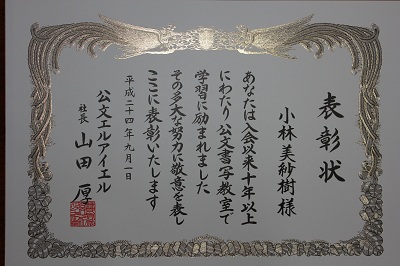 表彰状
小林美紗樹様
あなたは入会以来十年以上
にわたり公文書写教室で
学習に励まれました
その多大な努力に敬意を表し
ここに表彰いたします
平成二十四年九月一日
公文エルアイエル
社長 山田 厚